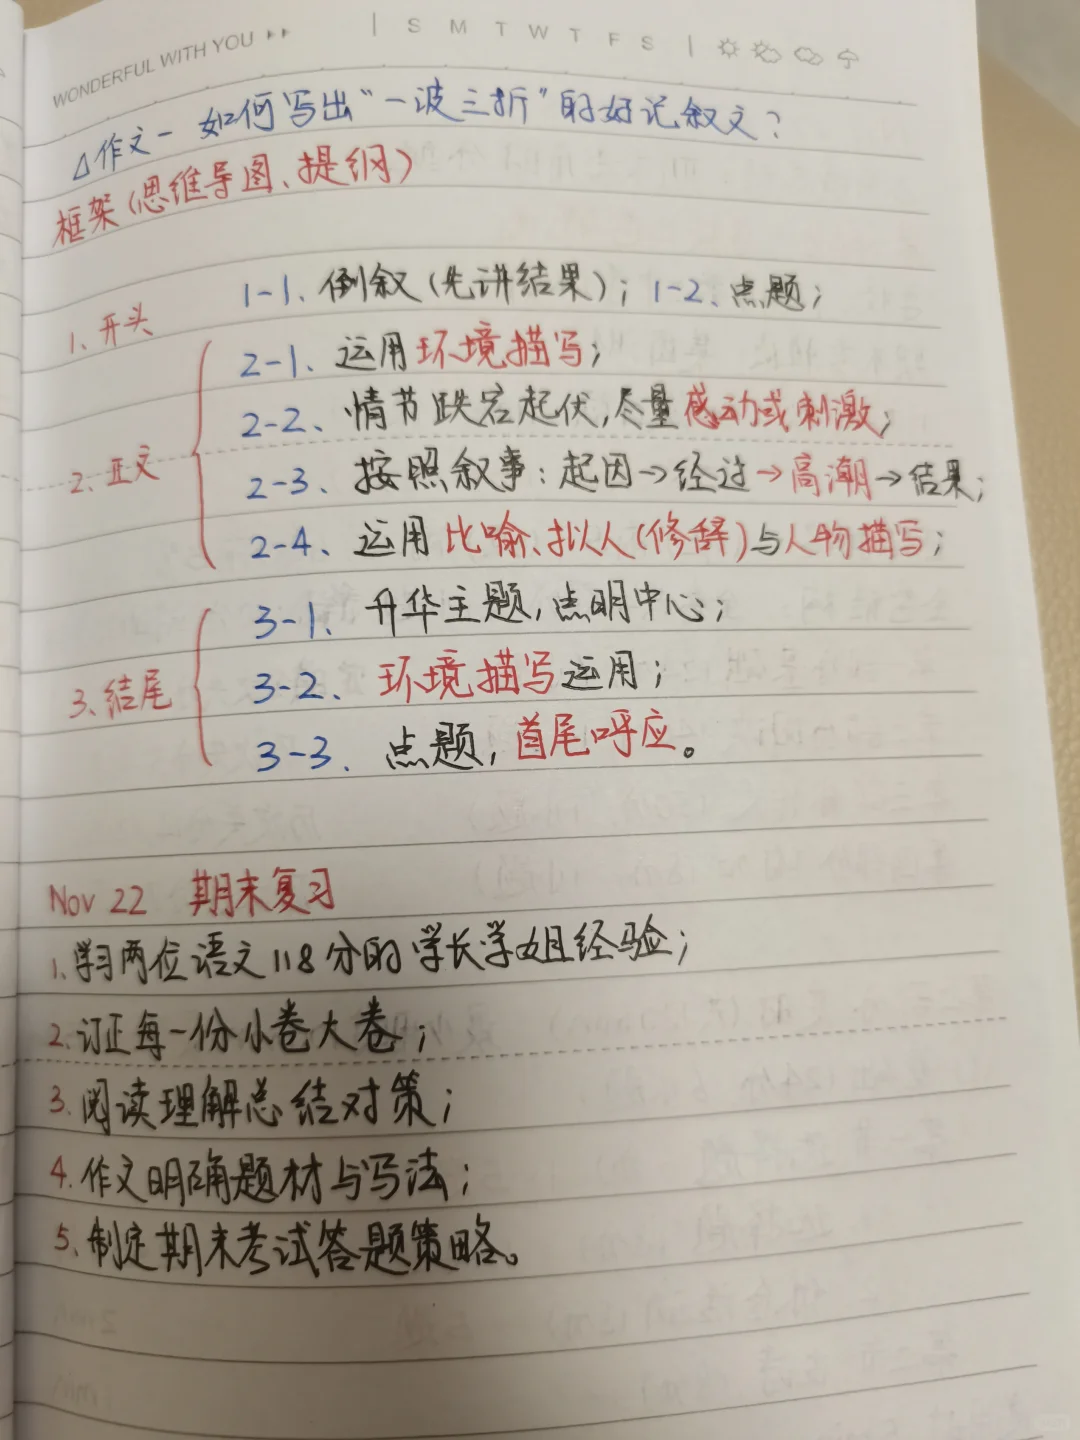 WONDERFUL WITH YOU ▸▸ | S M T W T F S |
△作文-如何写出"一波三折"的好记叙文?
框架(思维导图、提纲)
1、开头 1-1、倒叙(先讲结果);1-2、点题;
2-1、运用环境描写;
2-2、情节跌宕起伏,尽量感动或刺激;
2、正文
2-3、按照叙事:起因→经过→高潮→结果;
2-4、运用比喻、拟人(修辞)与人物描写;
3-1、升华主题,点明中心;
3、结尾 3-2、环境描写运用;
3-3、点题,首尾呼应。
Nov 22 期末复习
1.学习两位语文118分的学长学姐经验;
2.订正每一份小卷大卷;
3.阅读理解总结对策;
4.作文明确题材与写法;
5.制定期末考试答题策略。